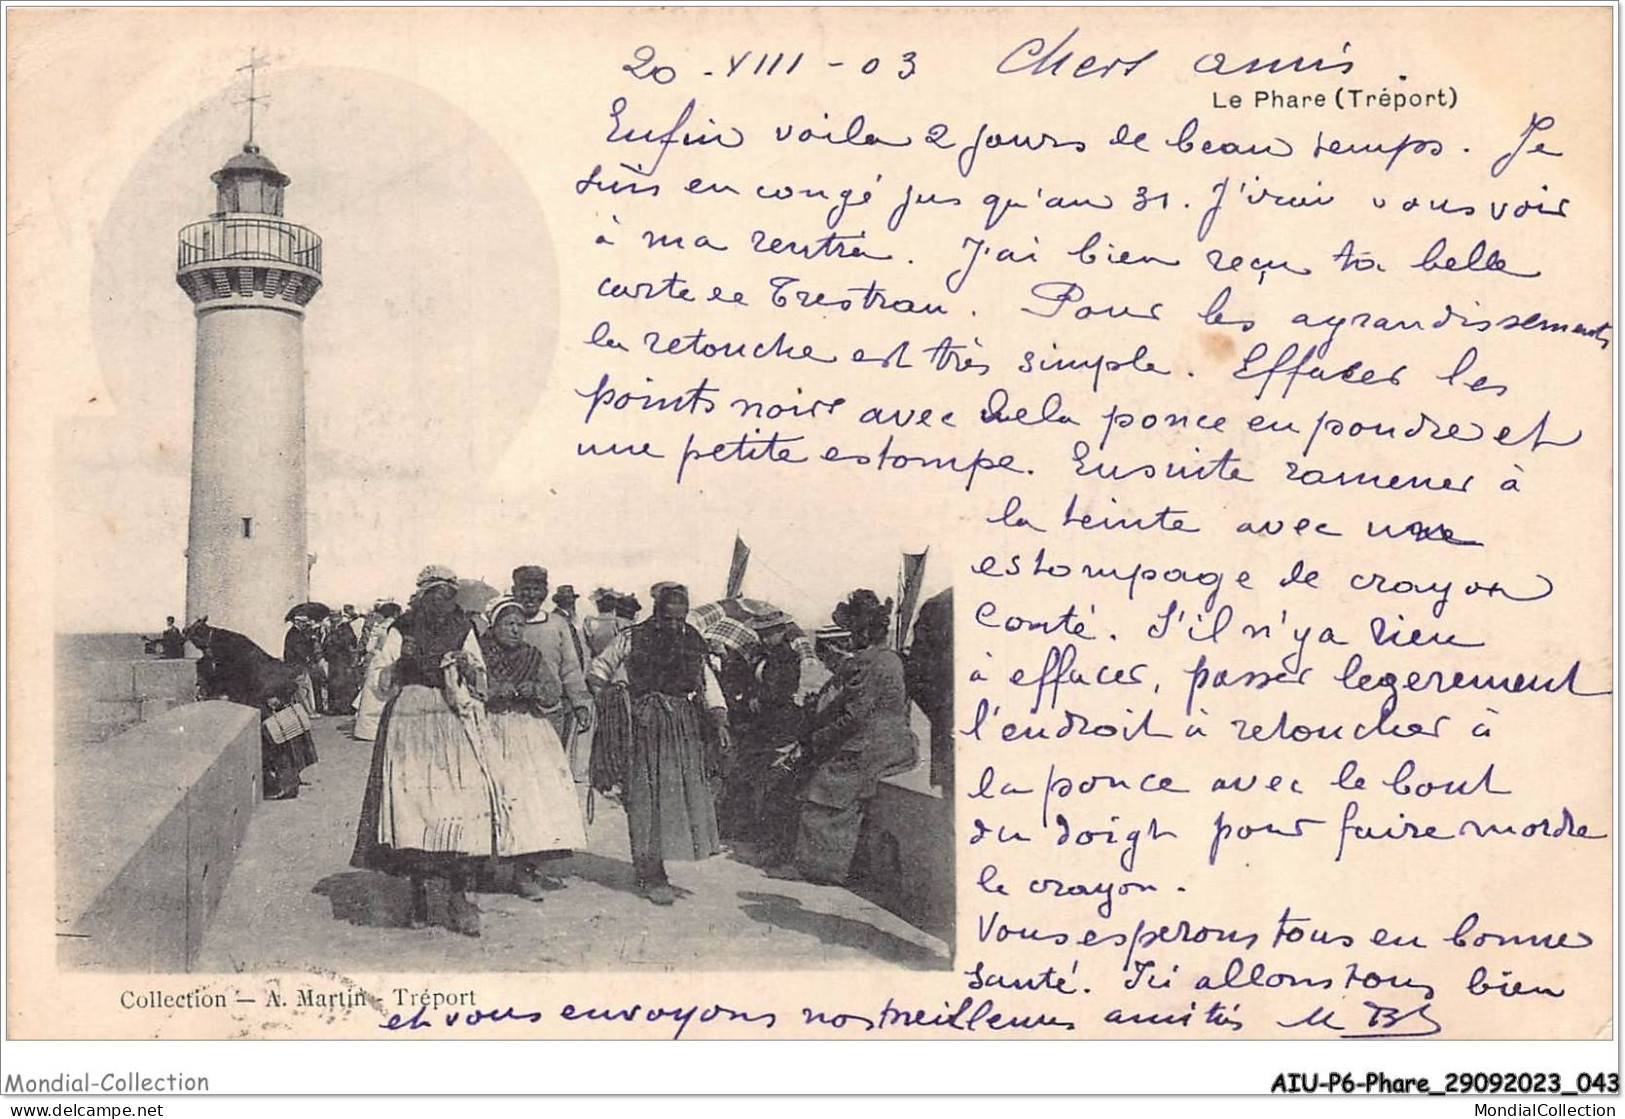 20 - VIII - 03 Chers amis
Le Phare (Tréport)
Enfin voila 2 jours de beau temps. Je
suis en congé jusqu'au 31. J'irai vous voir
à ma rentrée. J'ai bien reçu ta belle
carte de Trestrau. Pour les agrandissements
la retouche est très simple. Effacer les
points noirs avec de la ponce en poudre et
une petite estompe. Ensuite ramener à
la teinte avec une
estompage de crayon
Conté. S'il n'y a rien
à effacer, passer legerement
l'endroit à retoucher à
la ponce avec le bout
du doigt pour faire mordre
le crayon.
Vous esperons tous en bonne
santé. Ici allons tous bien
et vous envoyons nos meilleures amitiés
I
Collection — A. Martin - Tréport
Mondial-Collection
AIU-P6-Phare_29092023_043
www.delcampe.net
MondialCollection